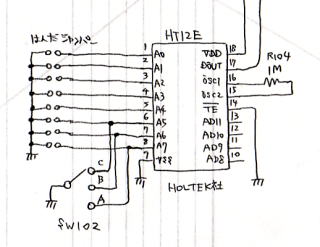 はんだジャンパー
HT12E
1 A0
2 A1
3 A2
4 A3
5 A4
6 A5
7 A6
8 A7
9 VSS
18 VDD
17 DOUT
16 OSC1
15 OSC2
14 TE
13 AD11
12 AD10
11 AD9
10 AD8
R104
1M
HOLTEK社
C
B
A
SW102